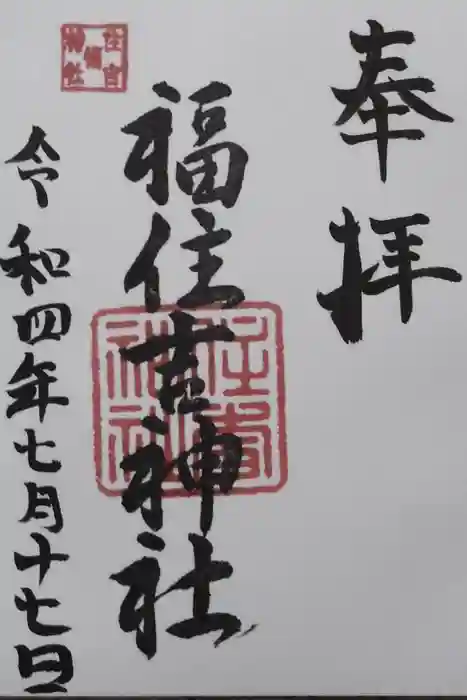 奉拝
住吉
福
神社
福住吉神社
住吉
神社
令和四年七月十七日